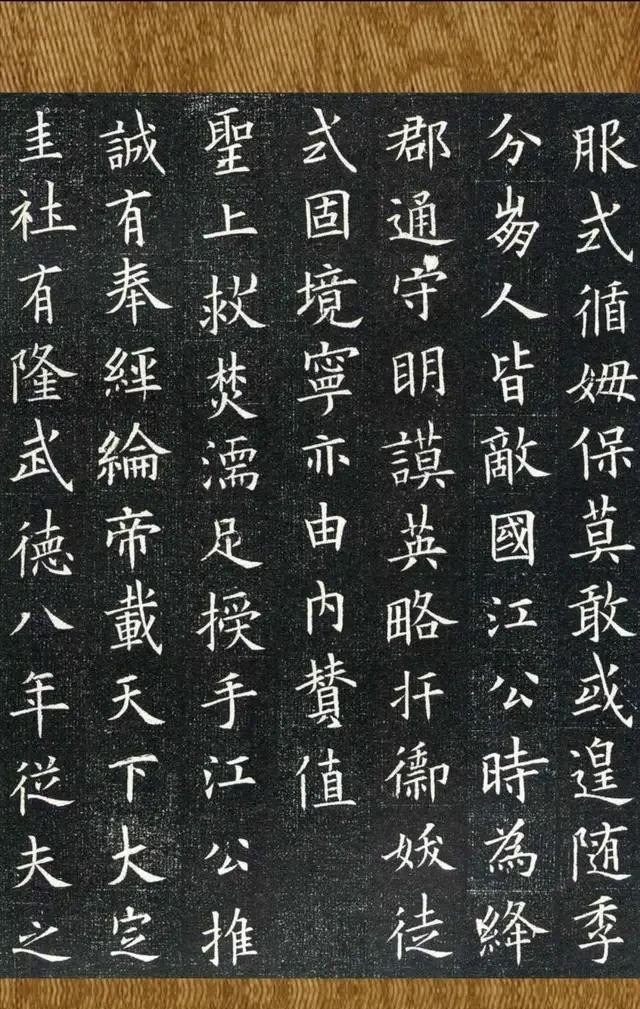 服式循姆保莫敢或遑随季
分崩人皆敵國江公時為絳
郡通守眀謨英略扞御徒
式固境寧亦由内贊值
聖上救焚濡足授手江公推
誠有奉經綸帝載天下大定
圭社有隆武德八年従夫之